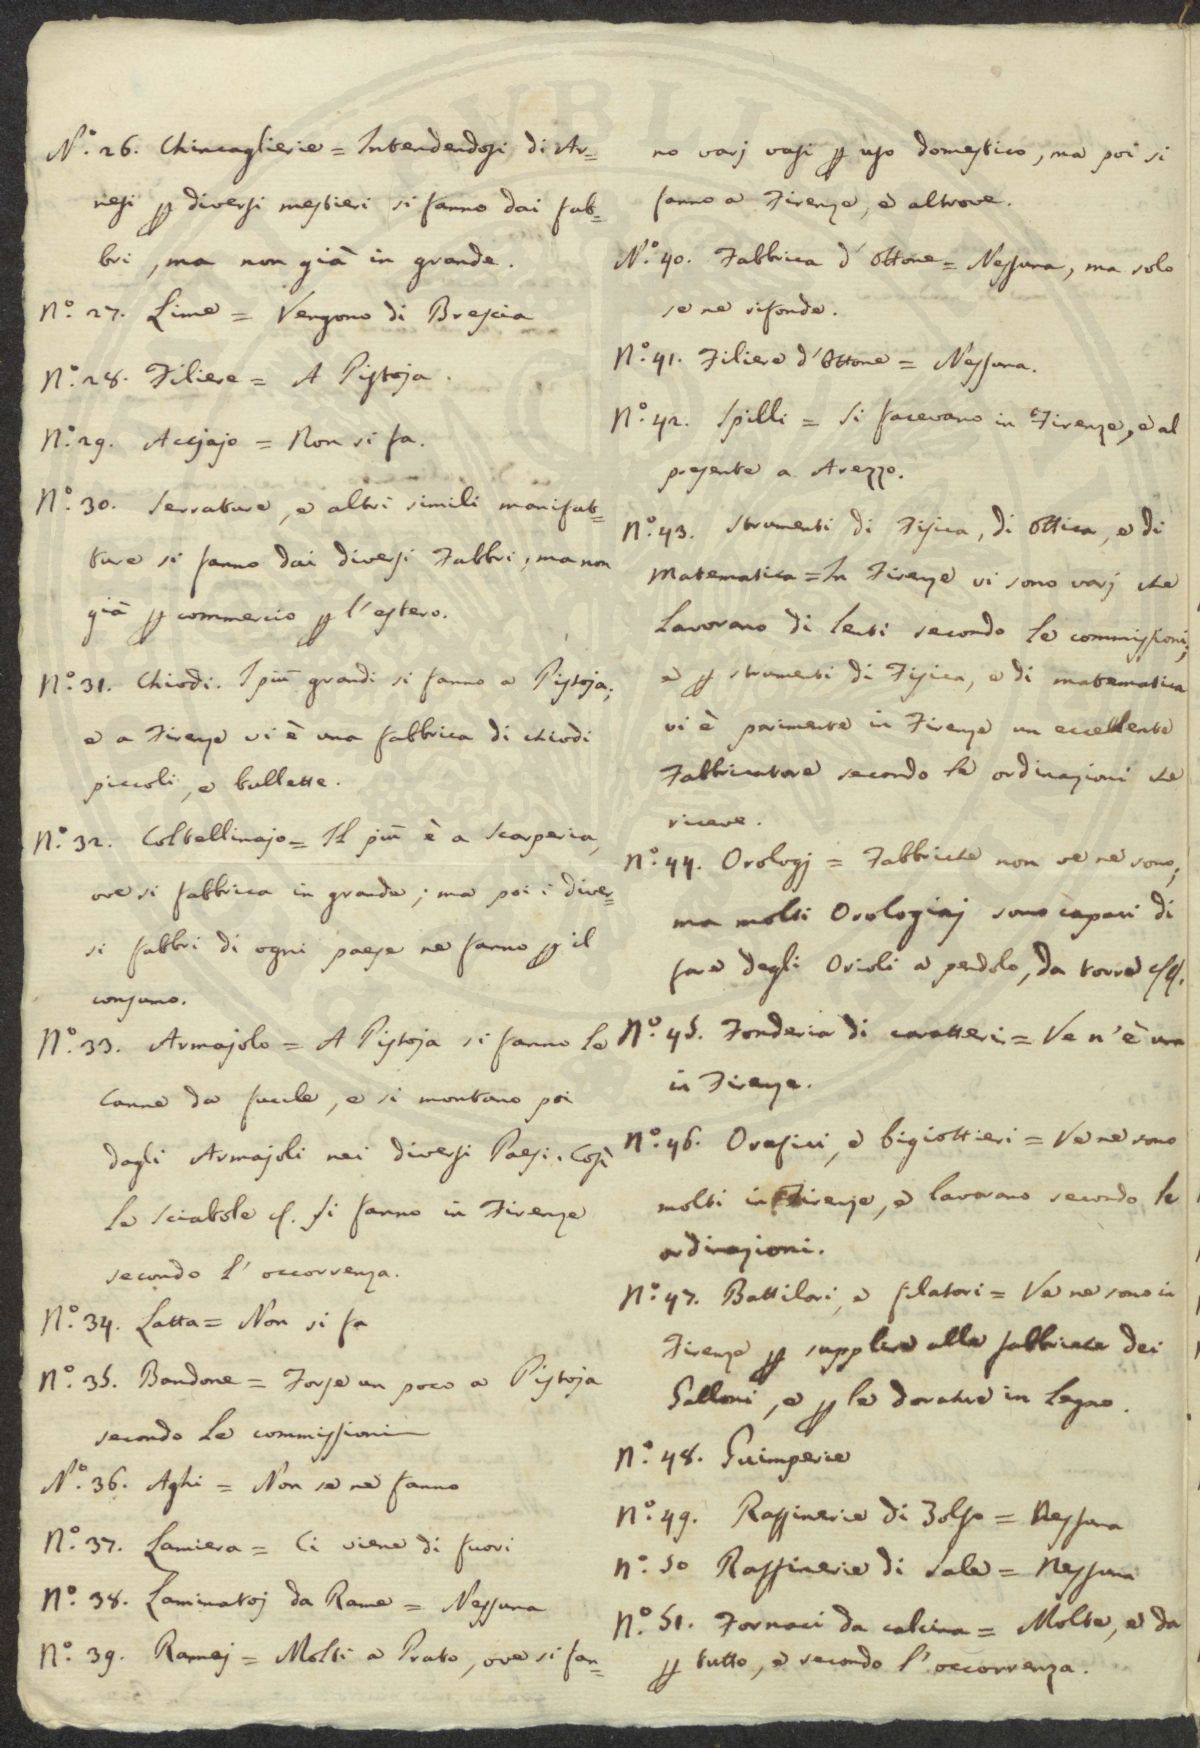 N.º 26. Chincaglierie = Intendendosi di Ar=
nesi p diversi mestieri si fanno dai fab=
bri, ma non già in grande.
N.º 27. Lime = Vengono di Brescia
N.º 28. Filiere = A Pistoja.
N.º 29. Acciajo = Non si fa.
N.º 30. Serrature, e altri simili manifat=
ture si fanno dai diversi Fabbri, ma non
già p commercio p l'estero.
N.º 31. Chiodi. I più grandi si fanno a Pistoja;
e a Firenze vi è una fabbrica di chiodi
piccoli, e bullette.
N.º 32. Coltellinajo = Il più è a Scarperia,
ove si fabbrica in grande; ma poi i diver=
si fabbri di ogni paese ne fanno p il
consumo.
N.º 33. Armajolo = A Pistoja si fanno le
Canne da fucile, e si montano poi
dagli Armajoli nei diversi Paesi. Così
le Sciabole &. si fanno in Firenze
secondo l'occorrenza.
N.º 34. Latta = Non si fa
N.º 35. Bandone = Forse un poco a Pistoja
secondo le commissioni
N.º 36. Aghi = Non se ne fanno
N.º 37. Lamiera = Ci viene di fuori
N.º 38. Laminatoj da Rame = Nessuna
N.º 39. Ramej = Molti a Prato, ove si fan=
no varj vasi p uso domestico, ma poi si
fanno a Firenze, e altrove.
N.º 40. Fabbrica d'Ottone = Nessuna, ma solo
se ne rifonde.
N.º 41. Filiere d'Ottone = Nessuna.
N.º 42. Spilli = Si facevano in Firenze, e al
presente a Arezzo.
N.º 43. Strumenti di Fisica, di Ottica, e di
Matematica = In Firenze vi sono varj che
Lavorano di lenti secondo le commissioni;
e p strumenti di Fisica, e di matematica
vi è parimente in Firenze un eccellente
Fabbricatore secondo le ordinazioni che
riceve.
N.º 44. Orologj = Fabbriche non ve ne sono;
ma molti Orologiaj sono capaci di
fare degli Orioli a pendolo, da torre &&.
N.º 45. Fonderia di caratteri = Ve n'è una
in Firenze.
N.º 46. Orefici, e bigiottieri = Ve ne sono
molti in Firenze, e lavorano secondo le
ordinazioni.
N.º 47. Battilori, e filatori = Ve ne sono in
Firenze p supplire alle fabbriche dei
Galloni, e p le dorature in Legno.
N.º 48. Guimperie
N.º 49. Raffinerie di Zolfo = Nessuna
N.º 50 Raffinerie di Sale = Nessuna
N.º 51. Fornaci da calcina = Molte, e da
p tutto, e secondo l'occorrenza.